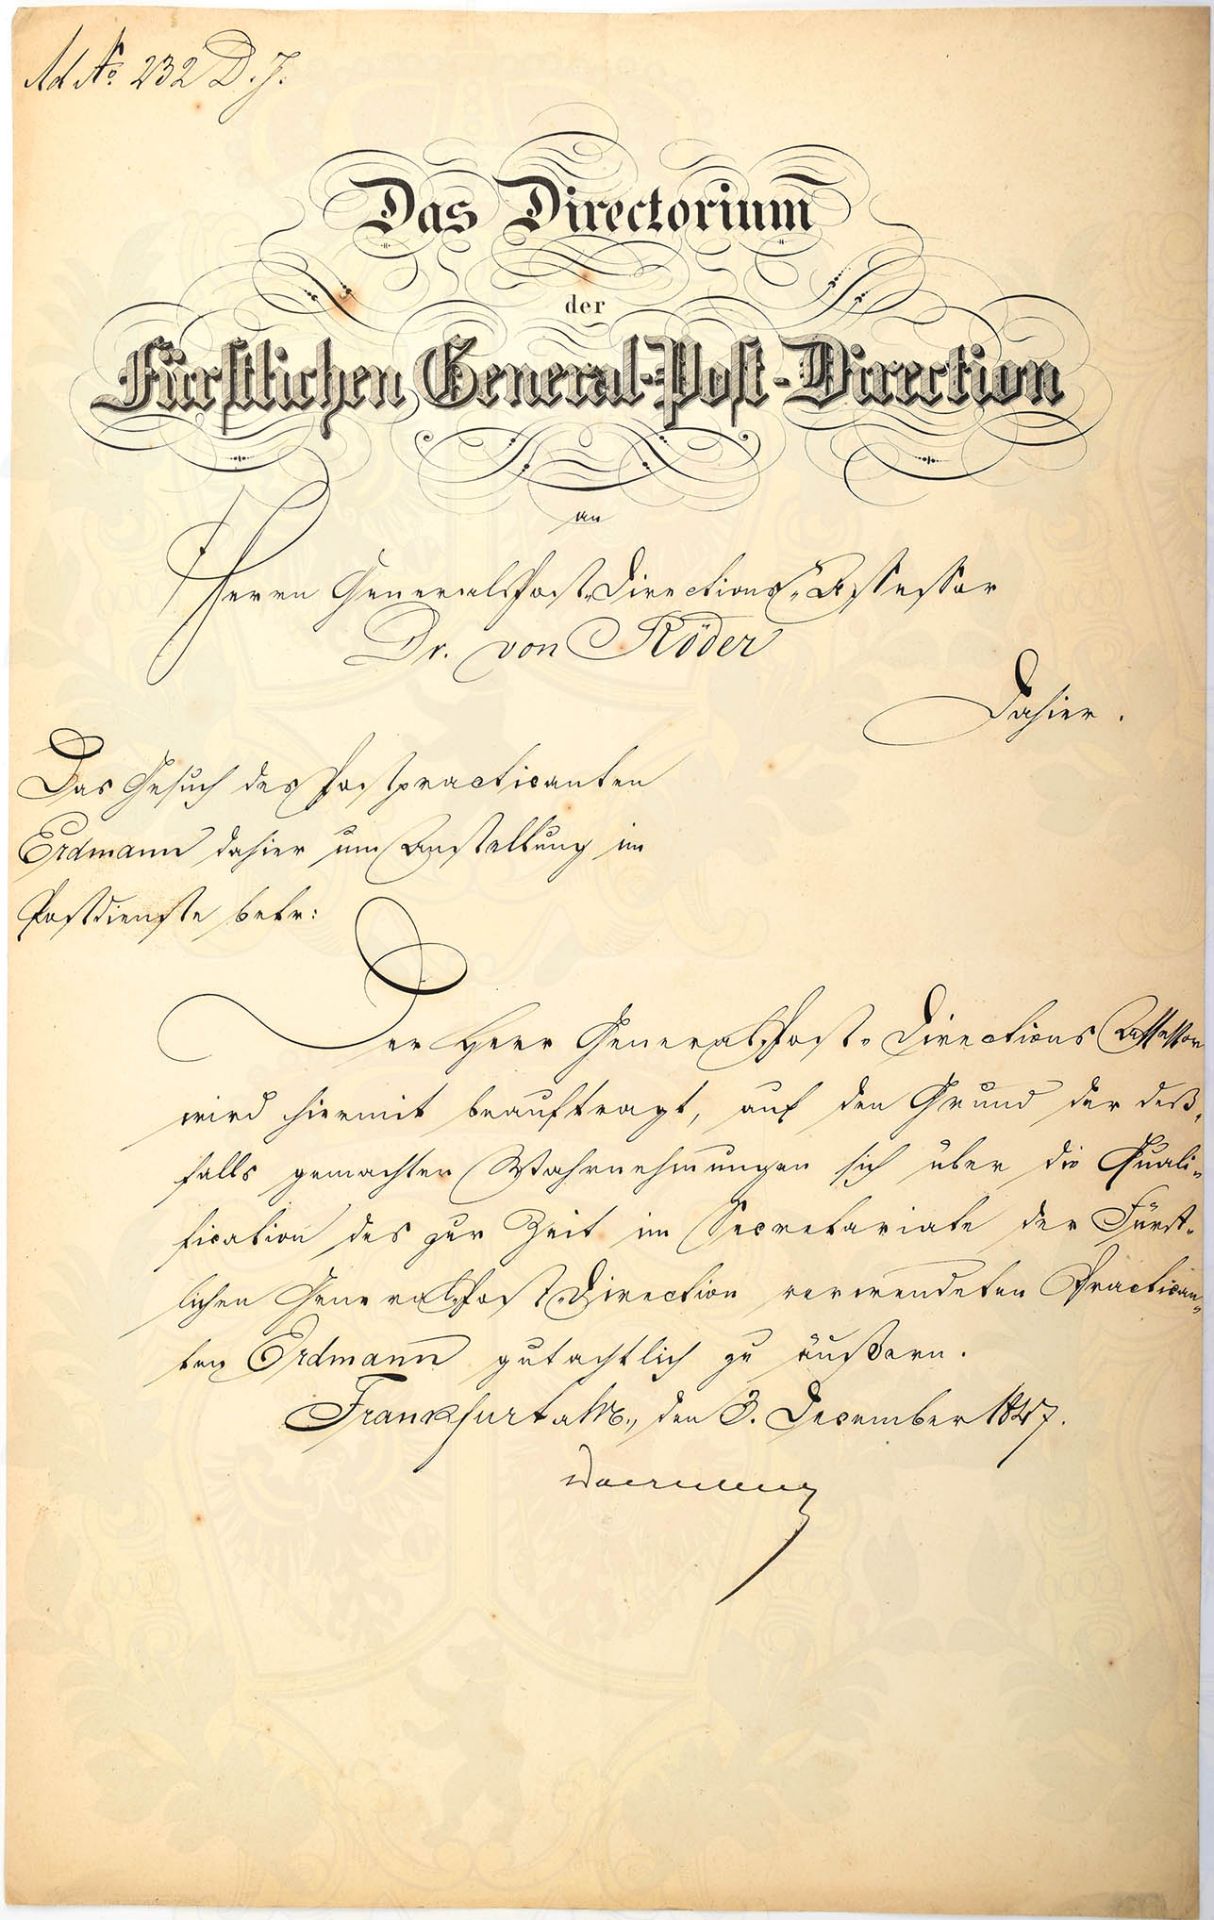 Ad No. 232 D. J.
Das Directorium
der
Fürstlichen General-Post-Direction
an
Herrn General-Post-Directions-Assessor
Dr. von Röder
Dahier.
Das Gesuch des Postpracticanten
Erdmann dahier um Anstellung im
Postdienste betr:
Der Herr General-Post-Directions Assessor
wird hiermit beauftragt, auf den Grund der deß-
falls gemachten Wahrnehmungen sich über die Quali-
fication des zur Zeit im Secretariate der Fürst-
lichen General-Post-Direction verwendeten Practican-
ten Erdmann gutachtlich zu äußern.
Frankfurt a/M., den 3. December 1847.